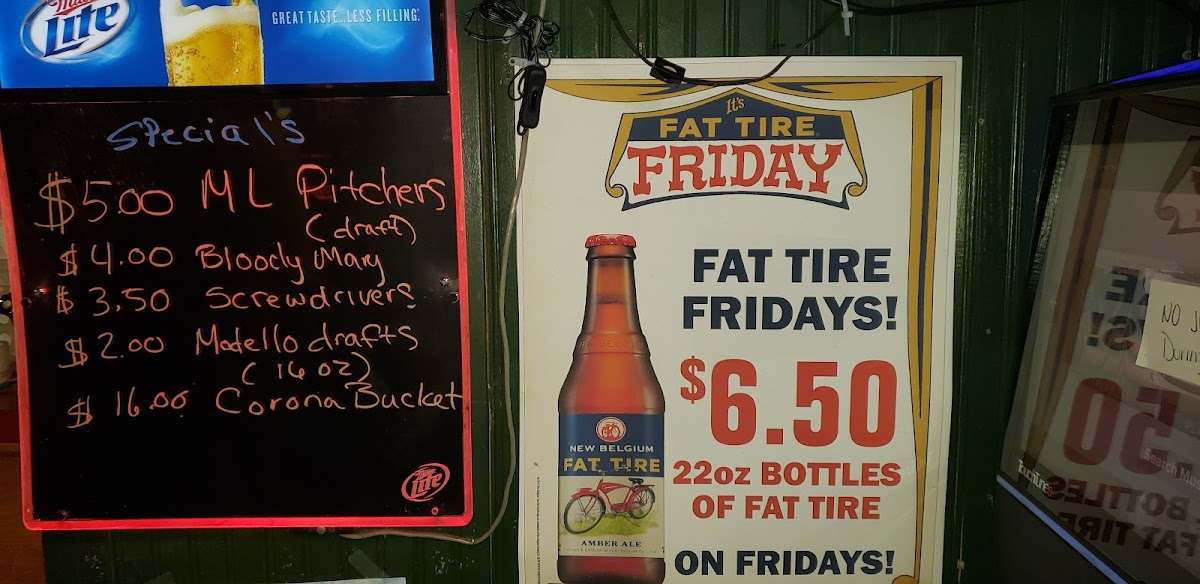 Miller
Lite
GREAT TASTE...LESS FILLING.
Special's
$5.00 ML Pitchers
(draft)
$4.00 Bloody Mary
$3.50 Screwdrivers
$2.00 Modello drafts
(16 oz)
$16.00 Corona Bucket
Lite
It's
FAT TIRE
FRIDAY
FAT TIRE
FRIDAYS!
$6.50
22oz BOTTLES
OF FAT TIRE
ON FRIDAYS!
NEW BELGIUM
FAT TIRE
AMBER ALE
NO
TouchTunes
Search Mu